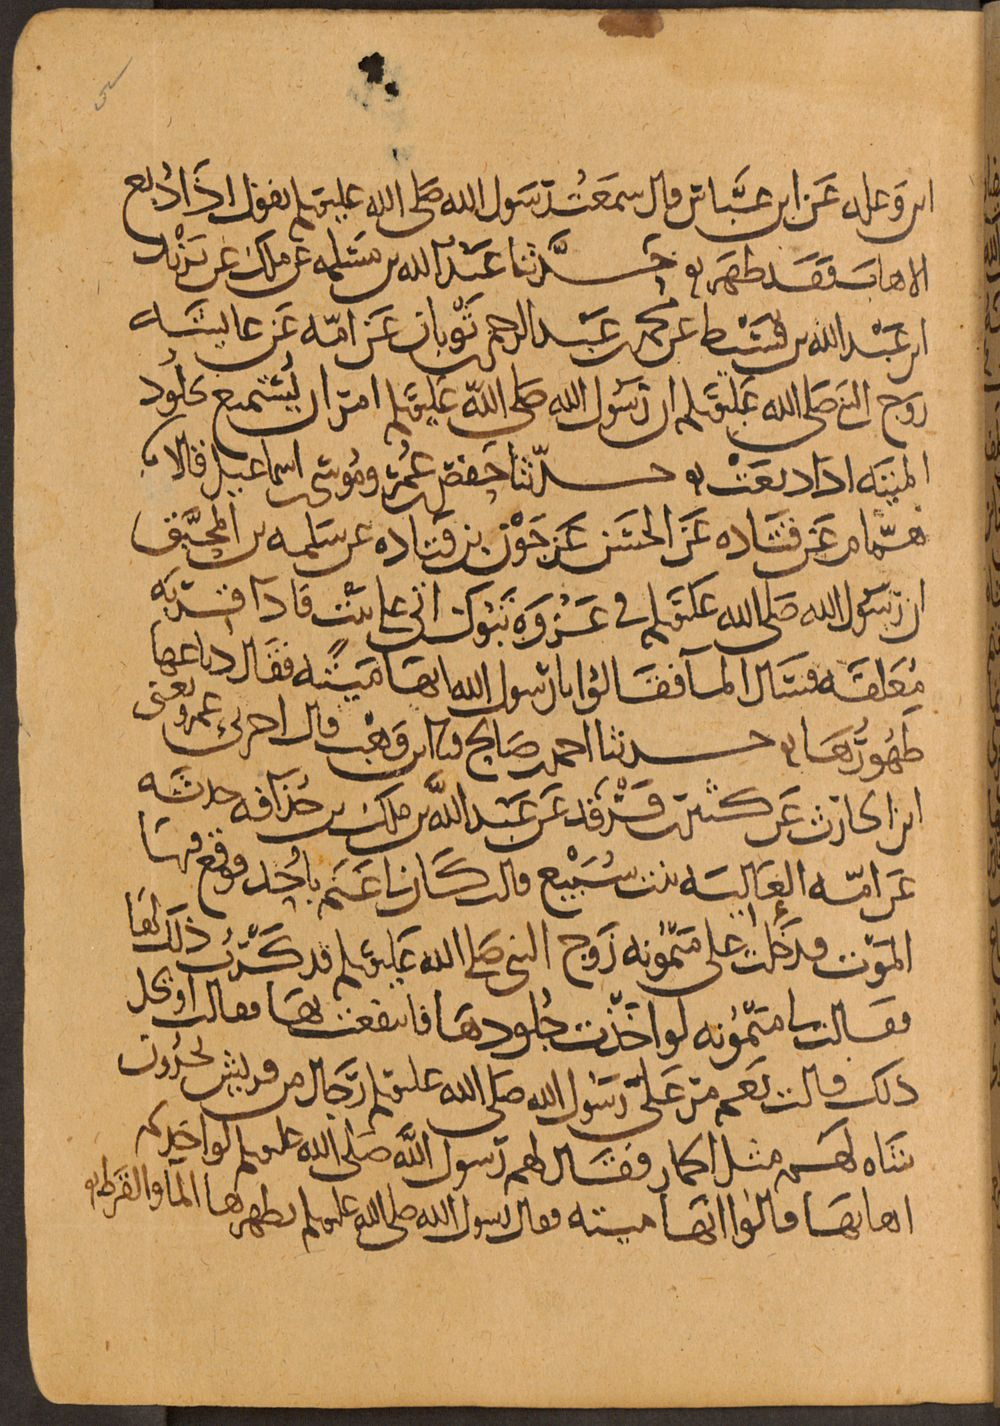 ابن وعله عن ابن عباس قال سمعت رسول الله صلى الله عليه وسلم يقول اذا دبغ
الاهاب فقد طهر حدثنا عبد الله بن مسلمه عن ملك عن يزيد
ابن عبد الله بن قسيط عن محمد بن عبد الرحمن بن ثوبان عن امه عن عايشه
زوج النبي صلى الله عليه وسلم ان رسول الله صلى الله عليه وسلم امر ان يستمتع بجلود
الميته اذا دبغت حدثنا حفص بن عمر وموسى بن اسماعيل قالا نا
همام عن قتاده عن الحسن عن جون بن قتاده عن سلمه بن المحبق
ان رسول الله صلى الله عليه وسلم في غزوه تبوك اتى على بيت فاذا قربه
معلقه فسال الما فقالوا يا رسول الله انها ميته فقال دباغها
طهورها حدثنا احمد بن صالح نا ابن وهب قال اخبرني عمرو يعني
ابن الحارث عن كثير بن فرقد عن عبد الله بن ملك بن حذافه حدثه
عن امه العاليه بنت سبيع قالت كان لنا غنم باحد فوقع فيها
الموت فدخلت على ميمونه زوج النبي صلى الله عليه وسلم فذكرت ذلك لها
فقالت لي ميمونه لو اخذت جلودها فانتفعت بها فقالت او يحل
ذلك قالت نعم مر على رسول الله صلى الله عليه وسلم رجال من قريش يجرون
شاه لهم مثل الحمار فقال لهم رسول الله صلى الله عليه وسلم لو اخذتم
اهابها قالوا انها ميته فقال رسول الله صلى الله عليه وسلم يطهرها الما والقرظ